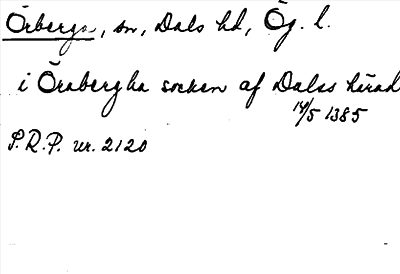 Örberga, sn, Dals hd, Ög. l.
i Örabergha socken af Dalss hærad
14/5 1385
S.R.P. nr. 2120